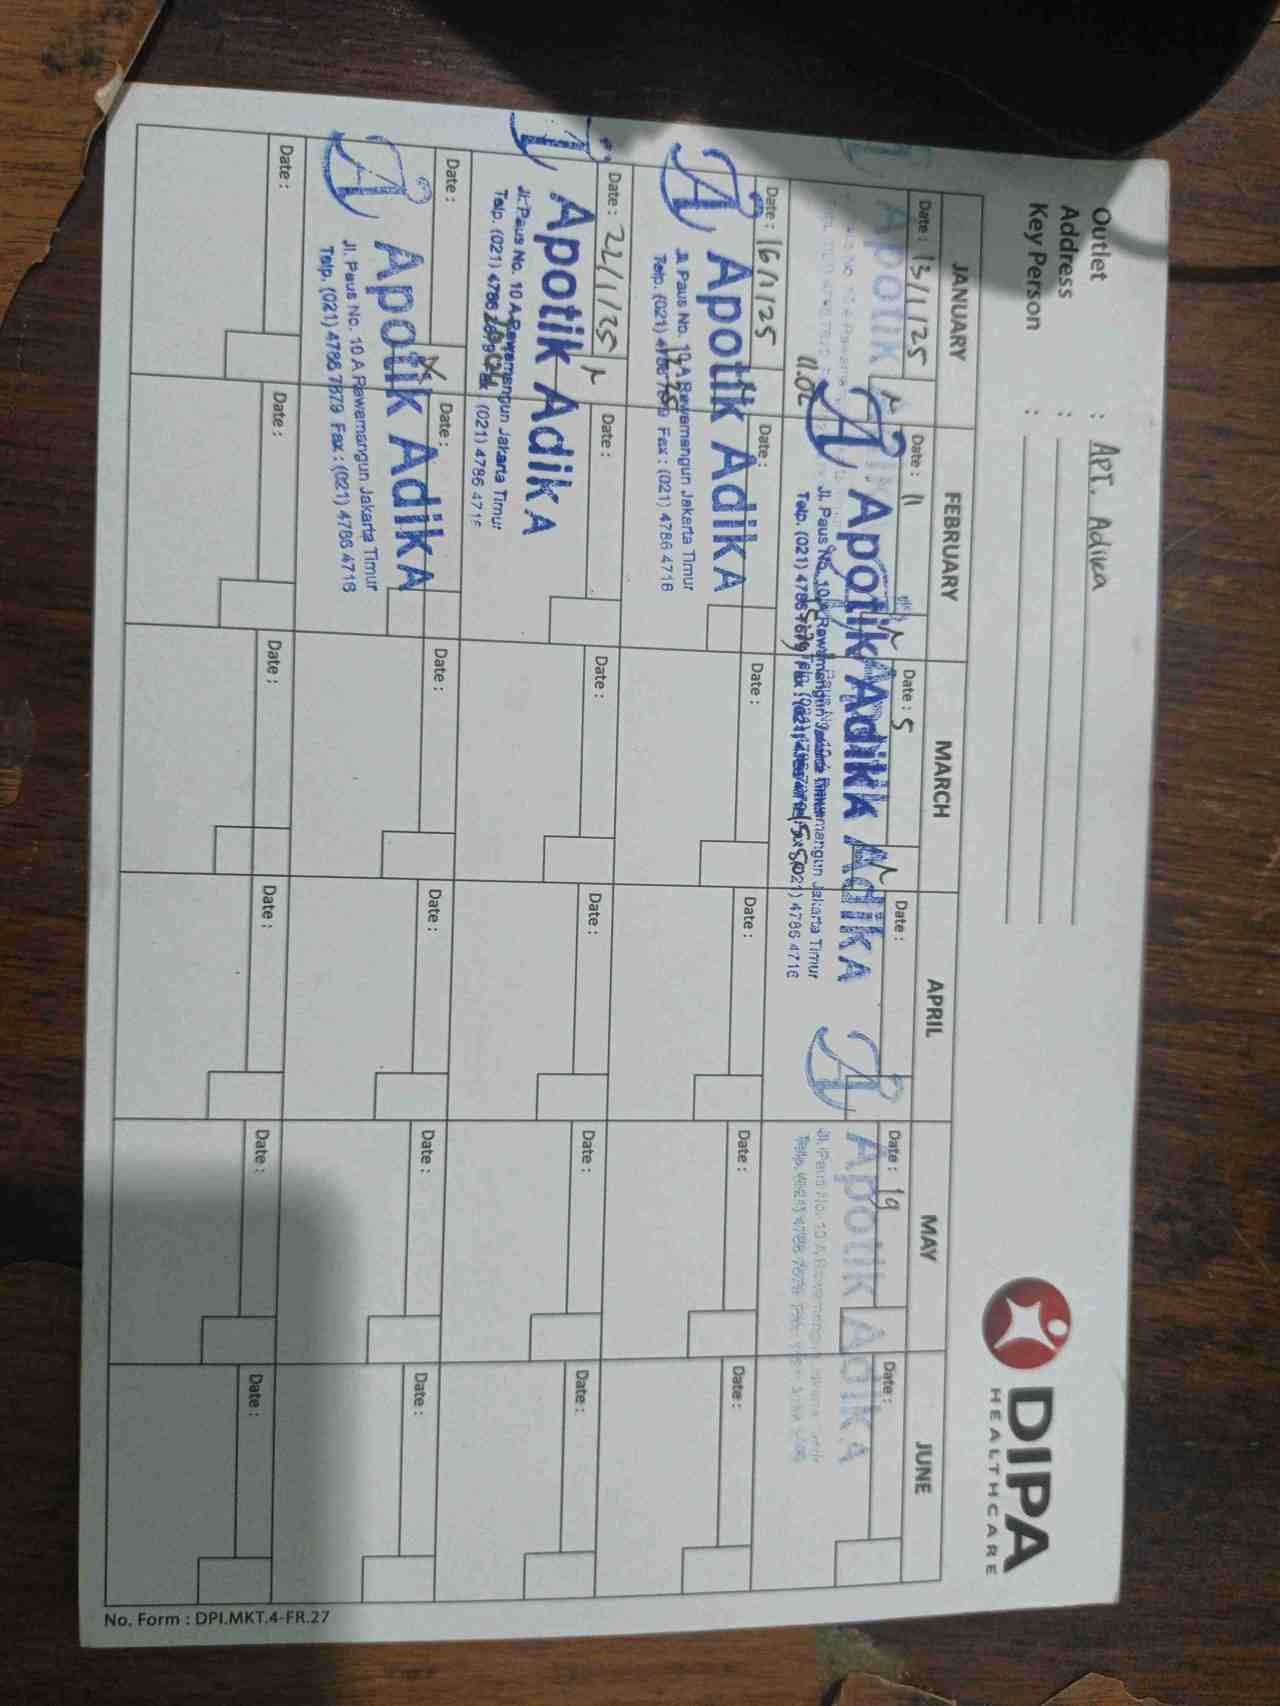 Outlet : APT. Adika
Address :
Key Person :
DIPA
HEALTHCARE
JANUARY FEBRUARY MARCH APRIL MAY JUNE
Date : 13/1/25 Date : 11 Date : 5 Date : Date : 19 Date :
Apotik Adika
Jl. Paus No. 10 A Rawamangun Jakarta Timur
Telp. (021) 4786 7879 Fax : (021) 4786 4716
Apotik Adika
11.02
Date : 16/1/25 Date : Date : Date : Date : Date :
Apotik Adika
Jl. Paus No. 10 A Rawamangun Jakarta Timur
Telp. (021) 4786 7879 Fax : (021) 4786 4716
Date : 22/1/25 Date : Date : Date : Date : Date :
Apotik Adika
Jl. Paus No. 10 A Rawamangun Jakarta Timur
Telp. (021) 4786 7879 (021) 4786 4716
Date : Date : Date : Date : Date : Date :
Apotik Adika
Jl. Paus No. 10 A Rawamangun Jakarta Timur
Telp. (021) 4786 7879 Fax : (021) 4786 4716
Date : Date : Date : Date : Date : Date :
No. Form : DPI.MKT.4-FR.27